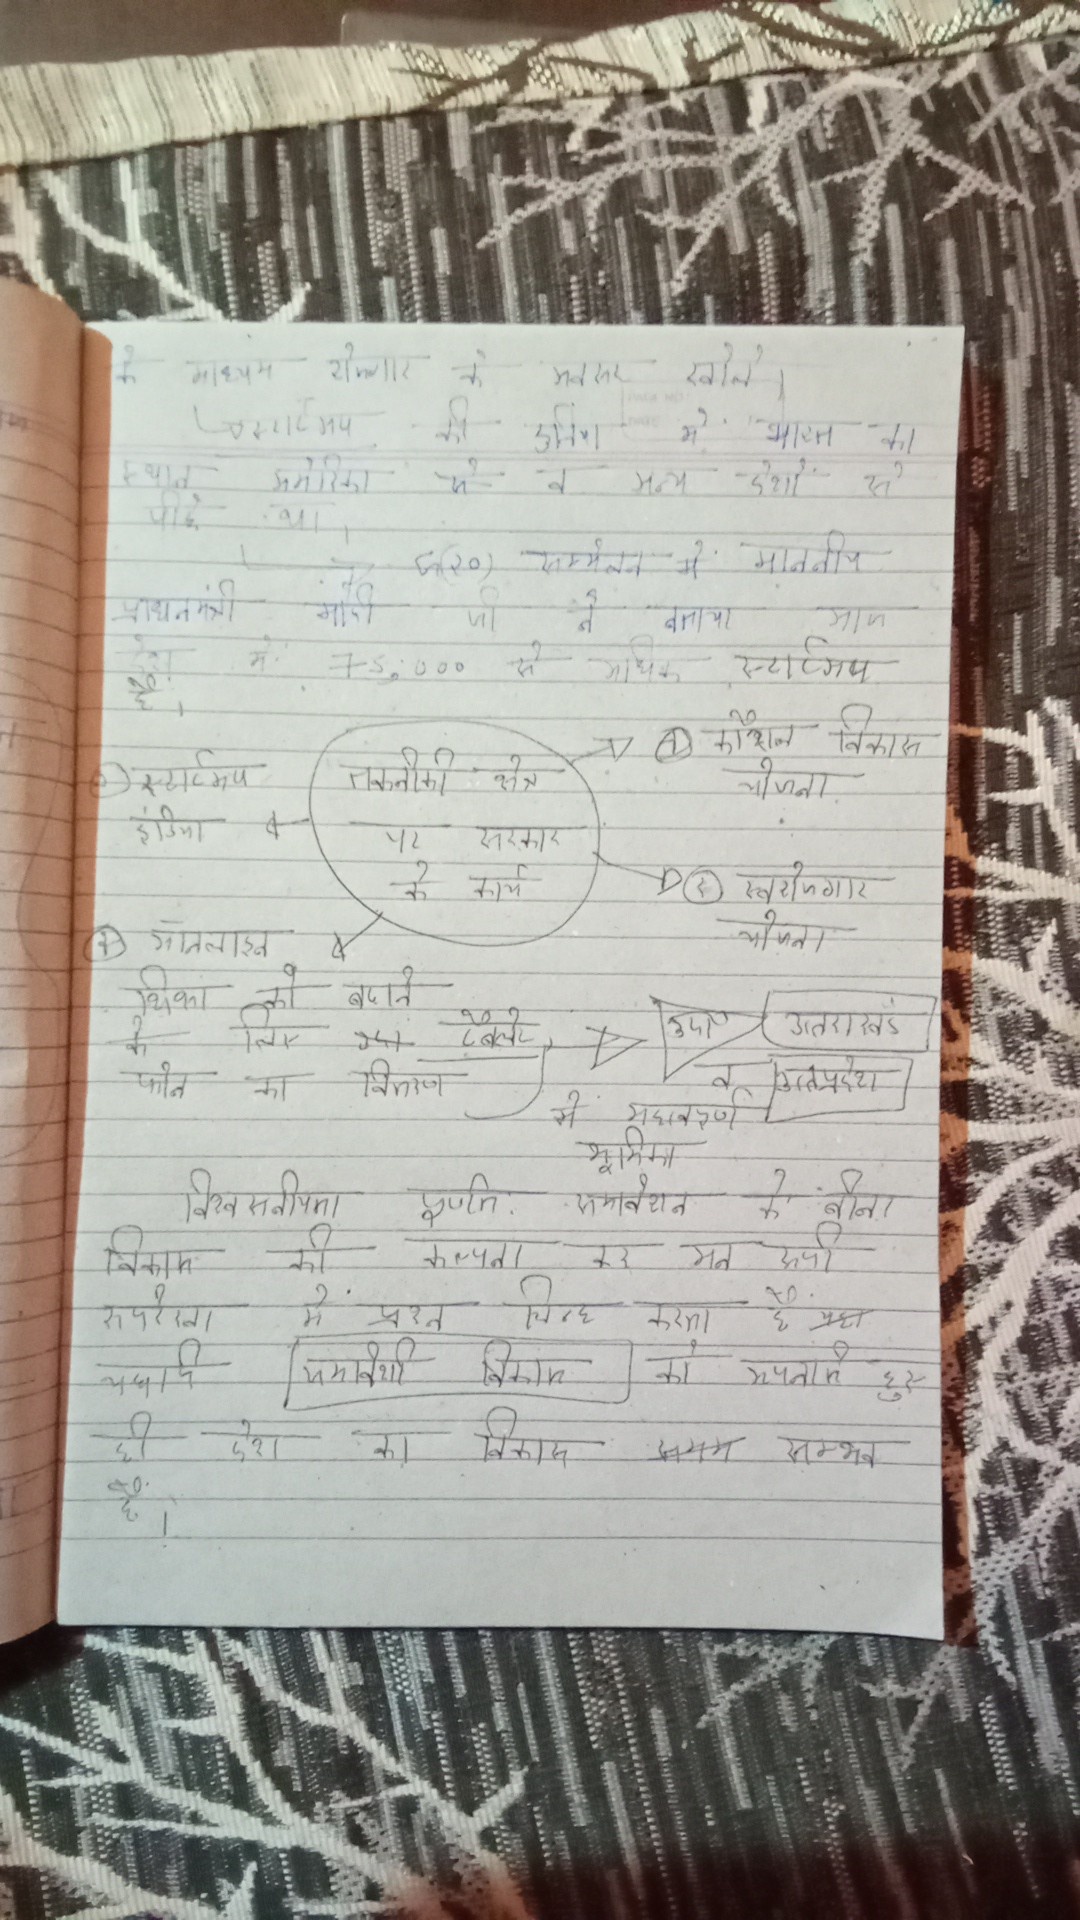 के माध्यम रोजगार के अवसर खोले।
स्टार्टअप की दुनिया में भारत का
स्थान अमेरिका व अन्य देशों से
पीछे था।
G(20) सम्मेलन में माननीय
प्राधनमंत्री मोदी जी ने बताया आज
देश में 75,000 से अधिक स्टार्टअप
है।
स्टार्टअप
इंडिया
तकनीकी क्षेत्र
पर सरकार
के कार्य
कौशल विकास
योजना
स्वरोजगार
योजना
ऑनलाइन
शिक्षा को बढाने
के लिए टैबलेट
फोन का वितरण
उदा० उत्तराखंड
व उत्तप्रदेश
में महत्वपूर्ण
भूमिका
विश्वसनीयता समावेशन के बीना
विकास की कल्पना कर
रूपरेखा में प्रश्न चिन्ह करता है
यद्यपि समावेशी विकास को अपनाते हुए
ही देश का विकास सम्भव
है।